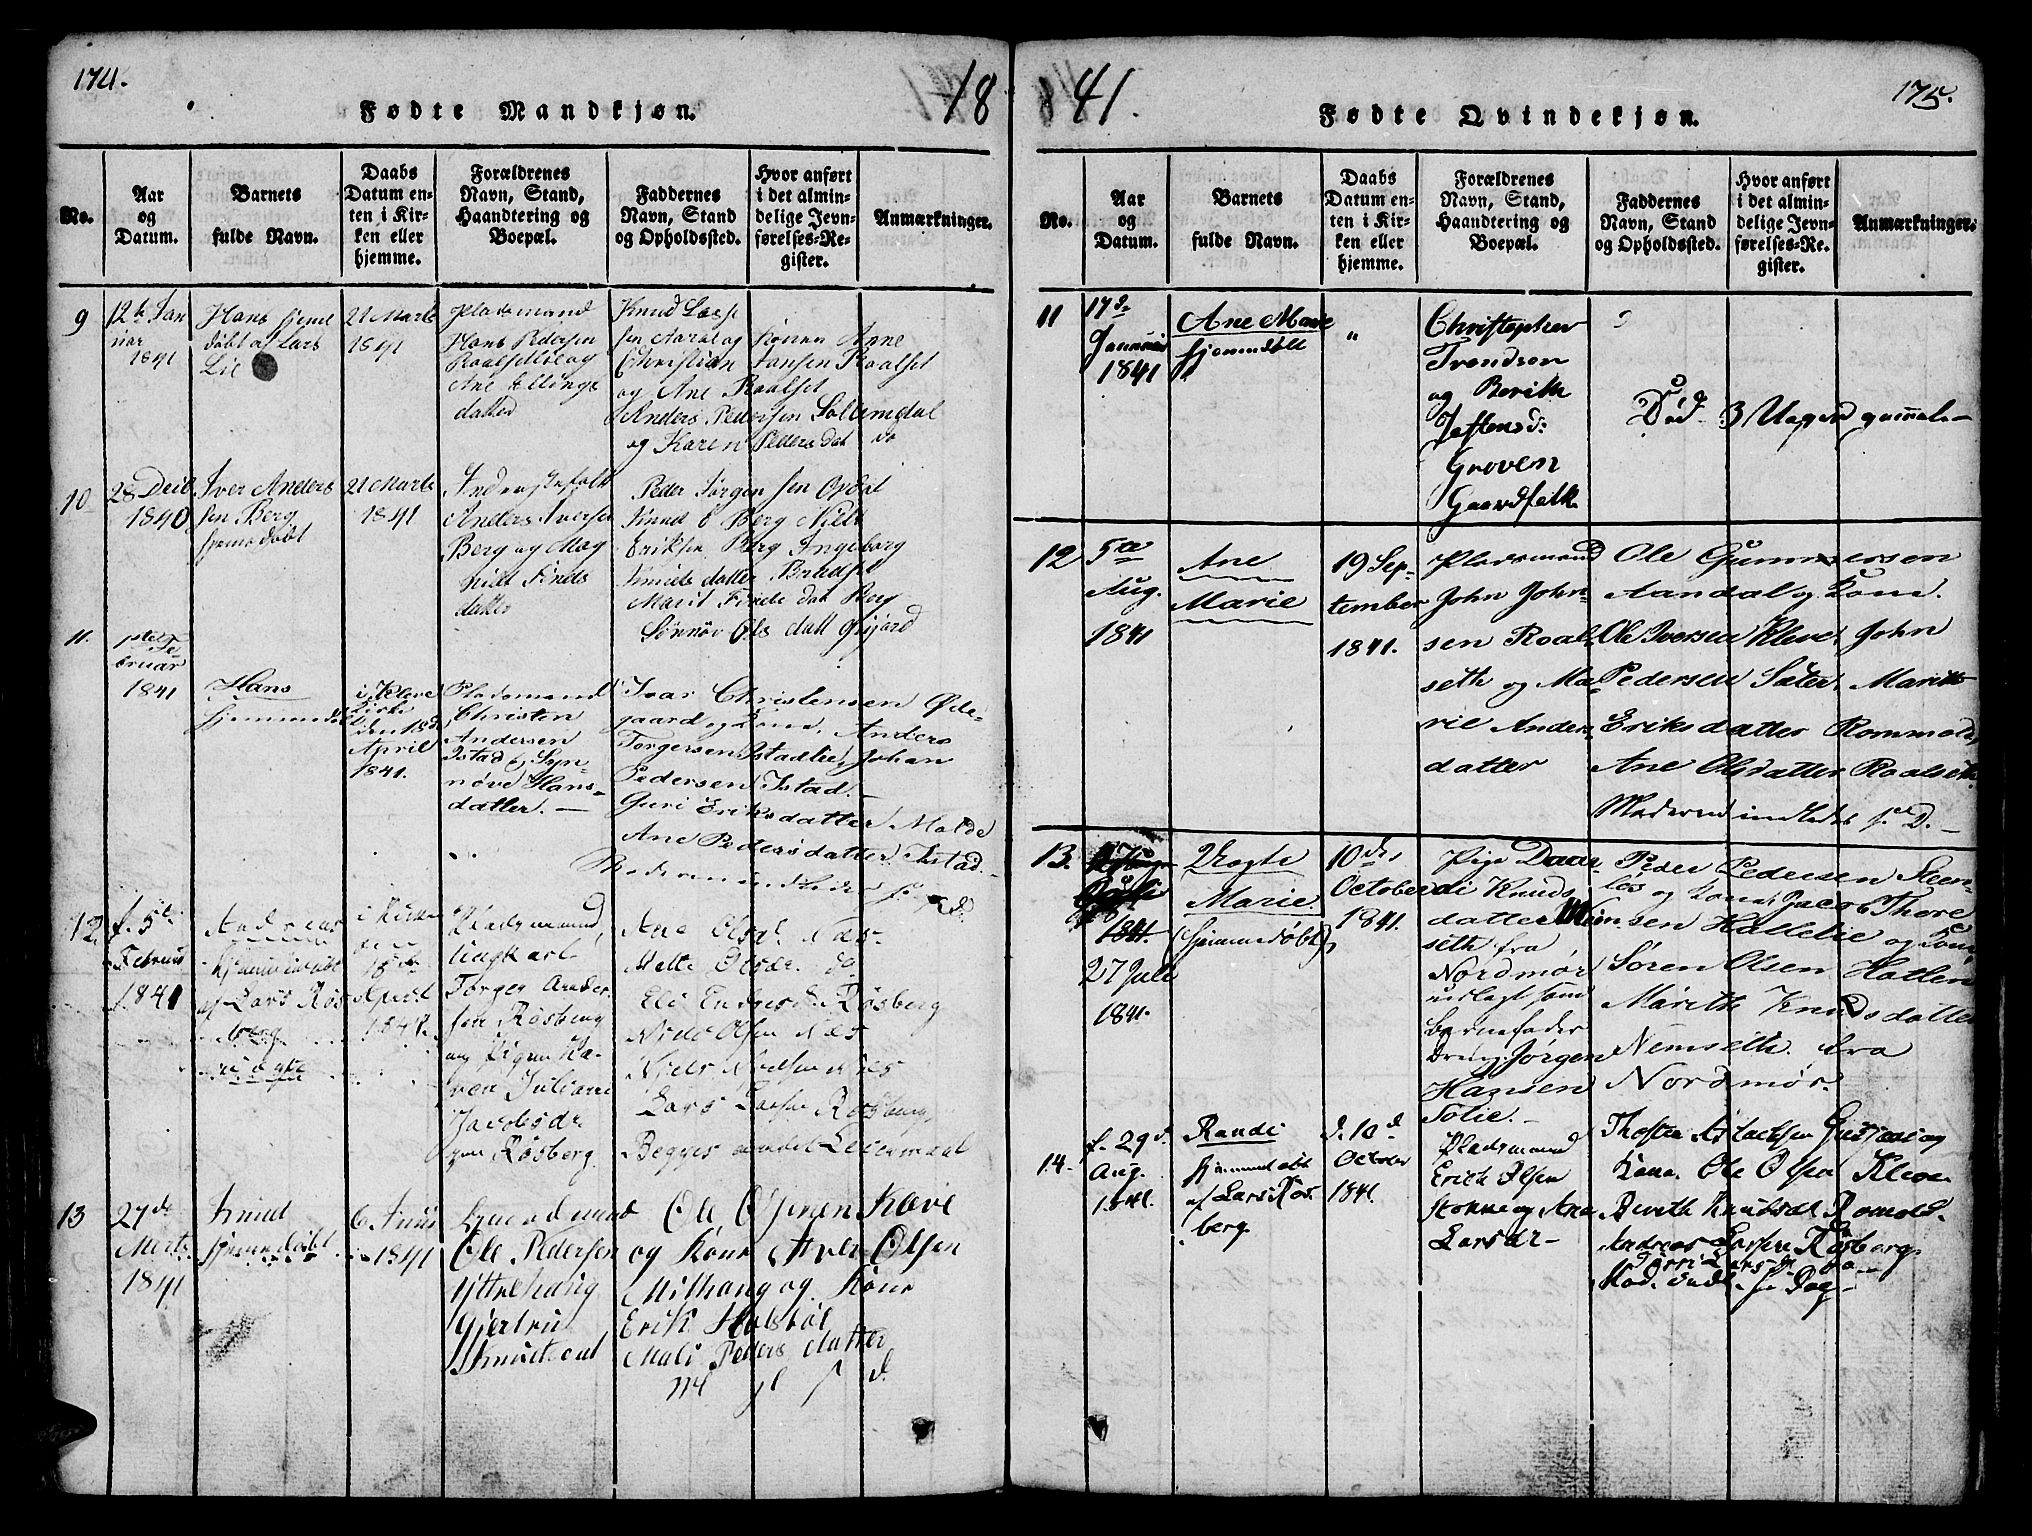 174.
18
Fødte Mandkjøn.
No.
Aar
og
Datum.
Barnets
fulde Navn.
Daabs
Datum en-
ten i Kir-
ken eller
hjemme.
Forældrenes
Navn, Stand,
Haandtering og
Boepæl.
Faddernes
Navn, Stand
og Opholdssted.
Hvor anført
i det almin-
delige Jevn-
førelses-Re-
gister.
Anmærkninger.
9
12te Jan
uar
1841
Hans hjeme
døbt af Lars
Lie
21 Marts
1841
Pladsmand
Hans Pedersen
og
Ane Ellings
datter
Knud Lars
sen og Konen Anne
Christian Jansen Roalset
og Ane Roalset
Anders Pedersen Solemdal
og Karen Peders dat do
10
28 Decb
1840
Iver Anders
sen Berg
hjeme døbt
21 Marts
1841
Anders Iversen
Berg og Mag
hild Finds
datter
Peder Jørgen sen Opdal
Knud E Berg Nils
Eriksen Berg Ingeborg
Knuds datter
Marit Finds dat Berg
Sønnøv Ols datt Gujord
11.
1ste Fe-
bruar
1841
Hans
hjemmedøbt
i Kleve
Kirke
den 18d
April
1841.
Pladsmand
Christen
Andersen
Istad & Syn-
nøve Hans-
datter. —
Ivar Christensen Øde-
gaard og Kone, Anders
Torgersen Istadlie, Johan
Pedersen Istad. —
Guri Eriksdatter Molde
Ane Pedersdatter Istad. —
Moderen indledes s. D.
12.
f. 5te
Februar
1841
Andreas
hjemmedøbt
af Lars Røs
berg
uægte
i Kirken
den
18de
April
1841.
Pladsmand,
Ungkarl
Torger Ander
sen Røsberg
og Pigen Ka-
ren Juliane
Jacobsdr
Røsberg.
Ane Olsd. Næs.
Mette Olsdr. do
Eli Endresd. Røsberg
Niels Olsen Næs
Niels Nielsen Næs
Lars Larsen Røsberg,
Begges andet Leiermaal
13
27de
Marts
1841
Knud
hjemmedøbt
6 Juni
1841
Gaardmand
Ole Pedersen
Yttrehaug
Gjertru
Knutsdat
Ole Iversen Kleve
og Kone Iver Olsen
Mithaug og Kone
Erik Holsbøl
Mali Peders datter
M gl s d.
41.
175.
Fødte Qvindekjøn.
No.
Aar
og
Datum.
Barnets
fulde Navn.
Daabs
Datum en-
ten i Kir-
ken eller
hjemme.
Forældrenes
Navn, Stand,
Haandtering og
Boepæl.
Faddernes
Navn, Stand
og Opholdssted.
Hvor anført
i det almin-
delige Jevn-
førelses-Re-
gister.
Anmærkninger.
11
17d.
Januar
1841
Ane Marie
hjemmdøbt
"
Christopher
Trondsen
og Berith
Jestensd:
Groven
Gaardfolk
Død 3 Uger gammel —
12
5te
Aug.
1841
Ane
Marie
19 Sep-
tember
1841.
Pladsmand
John John-
sen Roal-
seth og Ma-
rie Anders-
datter
Ole Gummersen
Aandal og Kone.
Ole Iversen Kleve, John
Pedersen Sæter, Marith
Eriksdatter Rommold,
Ane Olsdatter Roalseth.
Moderen indledes s. D. —
13.
1841
27 Juli
1841.
Uægte
Marie
(hjemmedøbt)
10des
October
1841.
Pige Daar-
di Knuds
datter Nem-
seth fra
Nordmør
udlagt som
barnefader
Dreng Jørgen
Hansen
Solie. —
Peder Pedersen Steen-
løs og Kone, Jacob Thore
sen Hallelie og Kone,
Søren Olsen Hatlen
Marith Knudsdatter
Nemseth fra
Nordmør.
14.
f. 29d.
Aug.
1841.
Randi
hjemmedøbt
af Lars Røs
berg.
d. 10d
October
1841.
Pladsmand
Erich Olsen
Stokke og Ane
Larsdr —
Thosten Aslachsen Gusjaas og
Kone. Ole Olsen Kleve
Berith Knudsdt Romold.
Andreas Larsen Røsberg.
Larsd do —
Mod. indl. s. Dag —